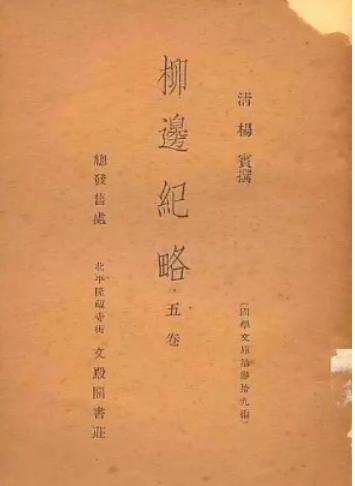 清 楊 賓撰
(國學文庫第肆拾九編)
柳邊紀略·五卷
總發售處
北平隆福寺街 文殿閣書莊